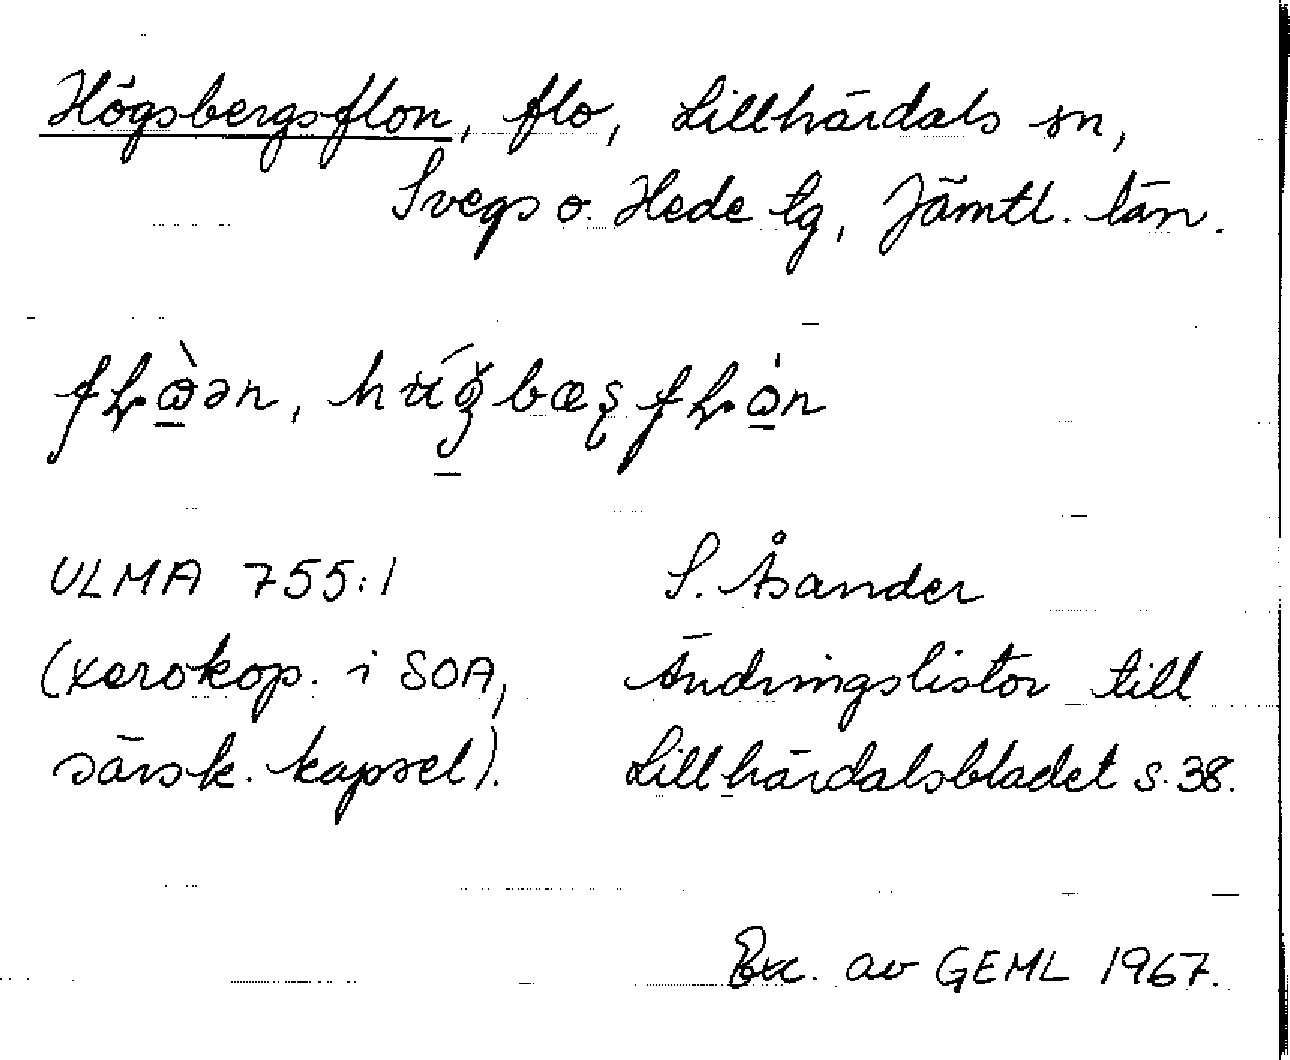 Högsbergsflon, flo, Lillhärdals sn,
Svegs o. Hede tg, Jämtl. län.
ULMA 755:1
S. Åsander
(xerokop. i SOA,
Ändringslistor till
särsk. kapsel).
Lillhärdalsbladet s. 38.
Exc. av GEML 1967.